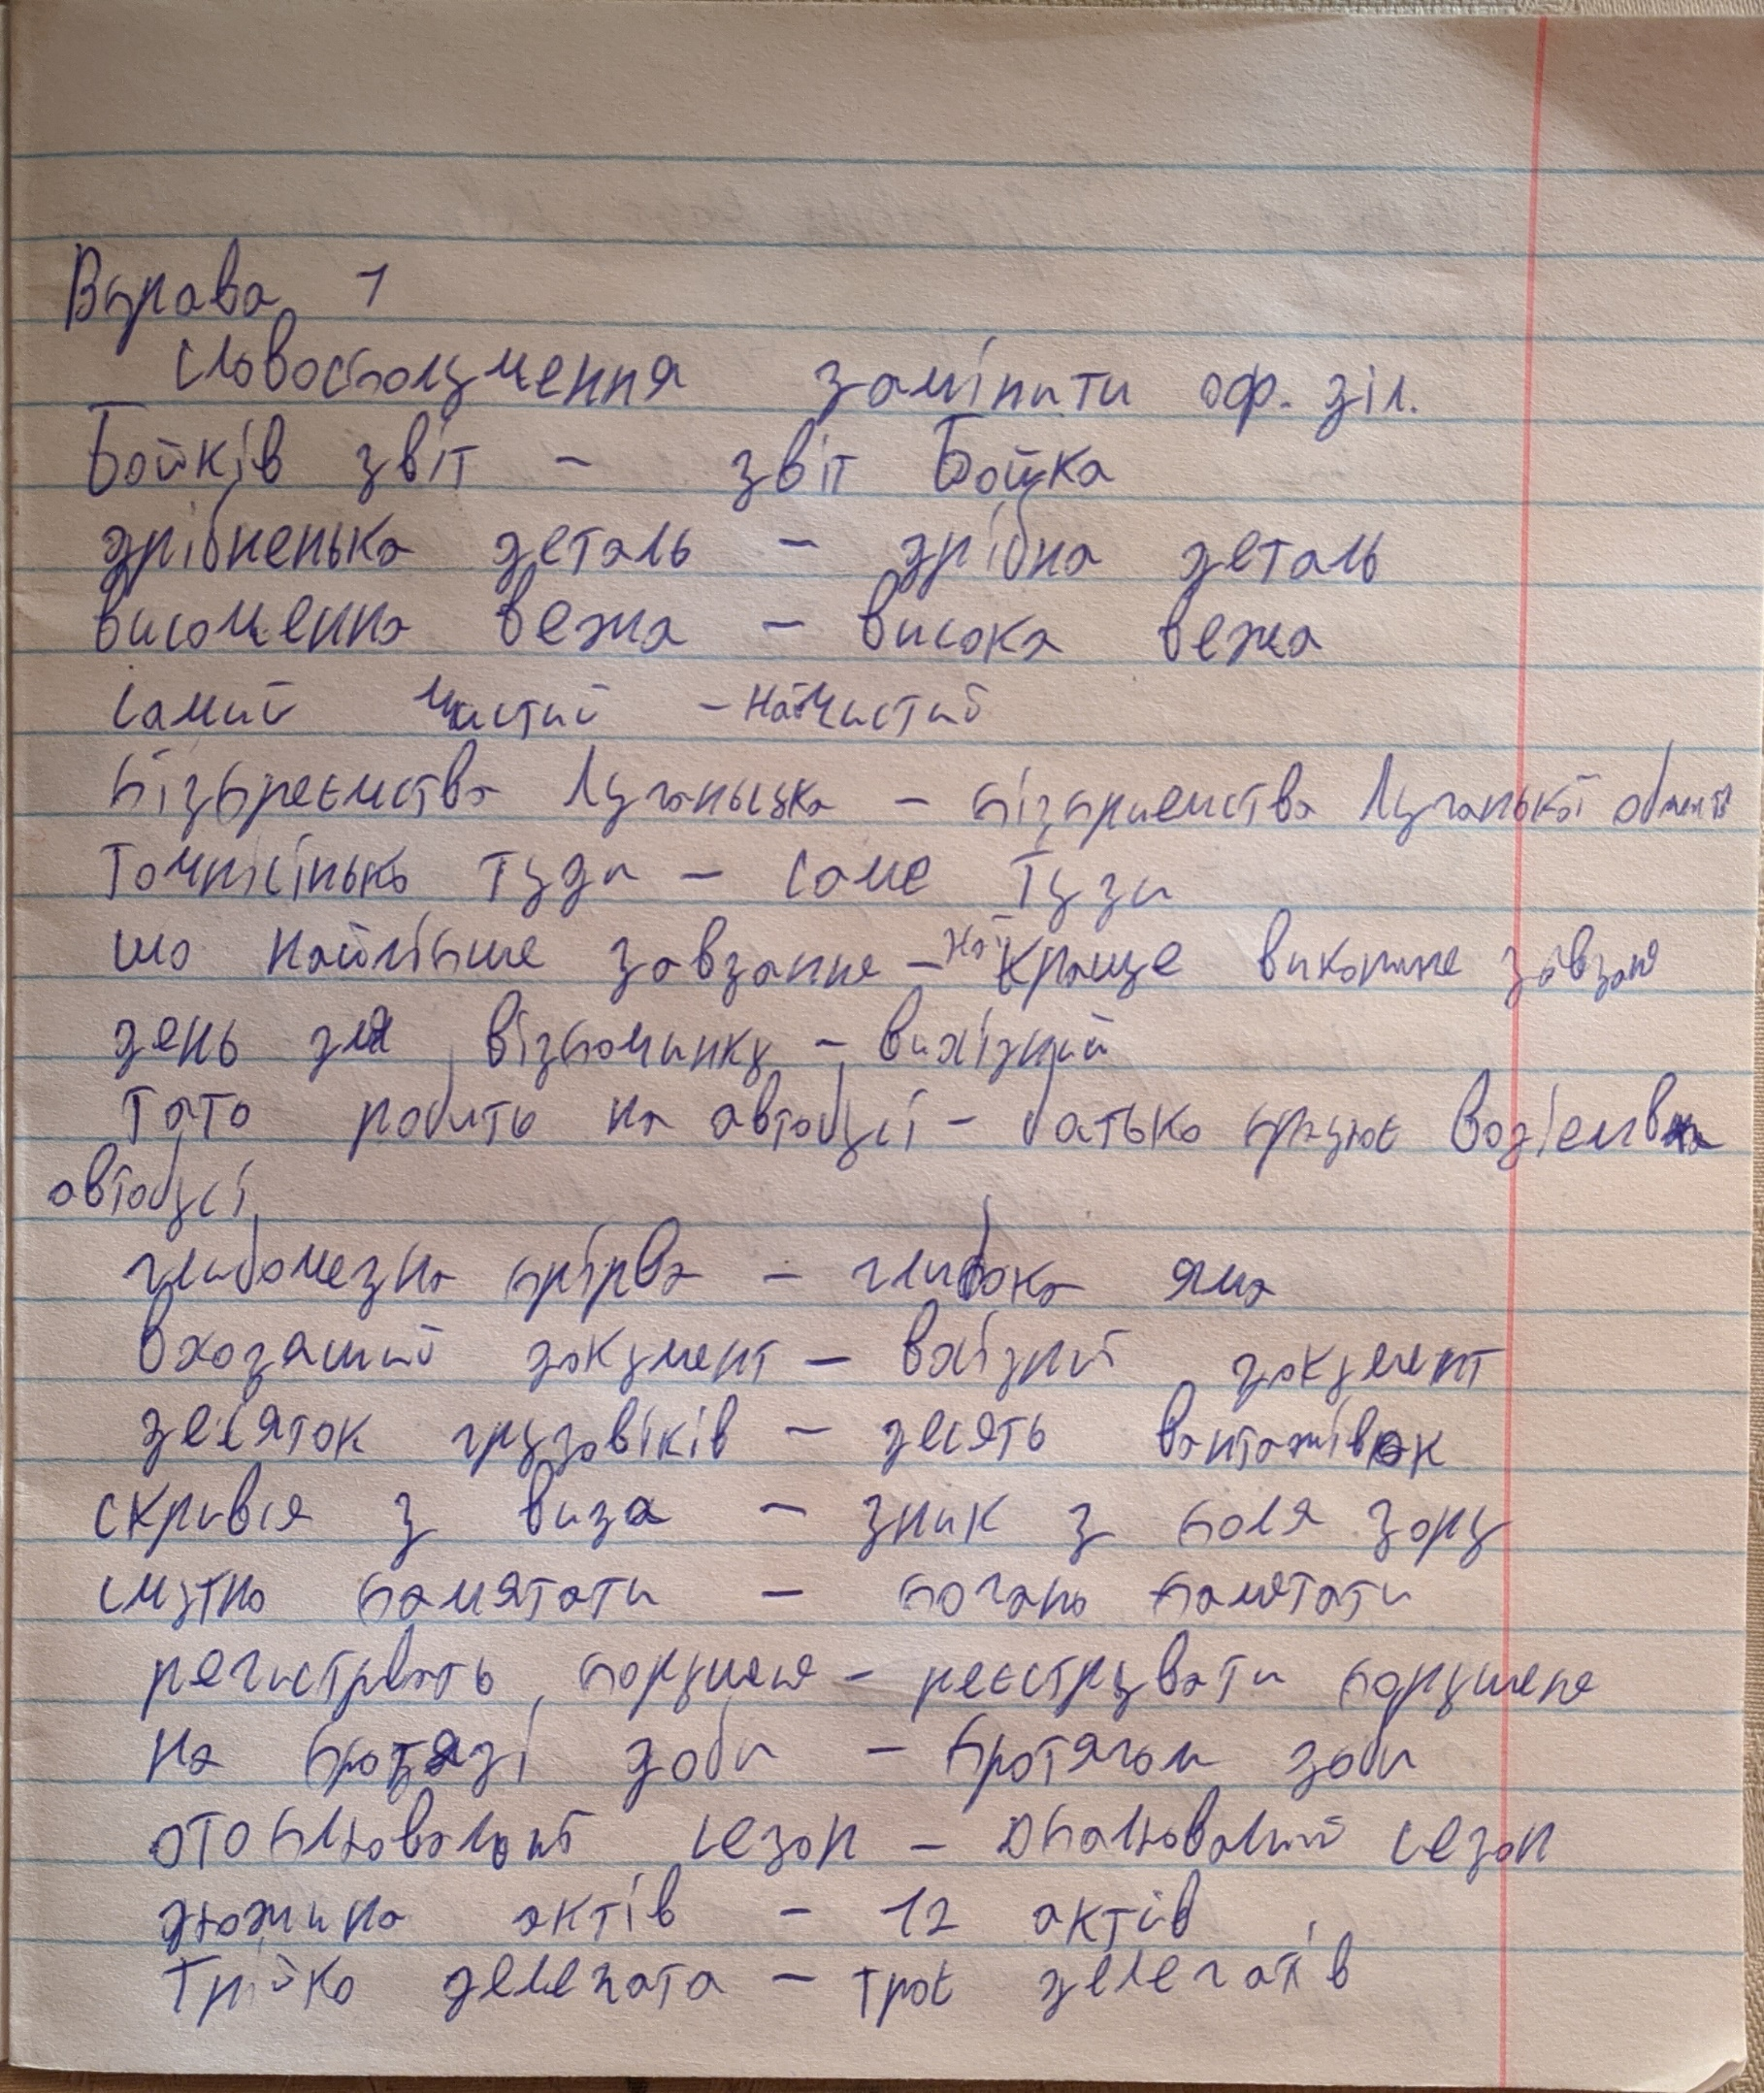 Вправа 1
словосполучення замінити оф. діл.
Бойків звіт - звіт Бойка
дрібненька деталь - дрібна деталь
височенна вежа - висока вежа
самий чистий - найчистий
підпреємства Луганська - підприемства Луганької області
точнісінько туди - саме туди
що найліпше завдання - найкраще виконане завданя
день для відпочинку - вихідний
тато робить на автобусі - батько працює водієм на
автобусі
глибочезна прірва - глибока яма
входящий документ - вхідний документ
десяток грузовіків - десять вантажівок
скрився з вида - зник з поля зору
смутно памятати - погано памятати
регистрвать порушеня - реєструвати порушеня
на протязі доби - протягом доби
отоплювальний сезон - опалювалний сезон
дюжина актів - 12 актів
трійко делегата - троє делегатів